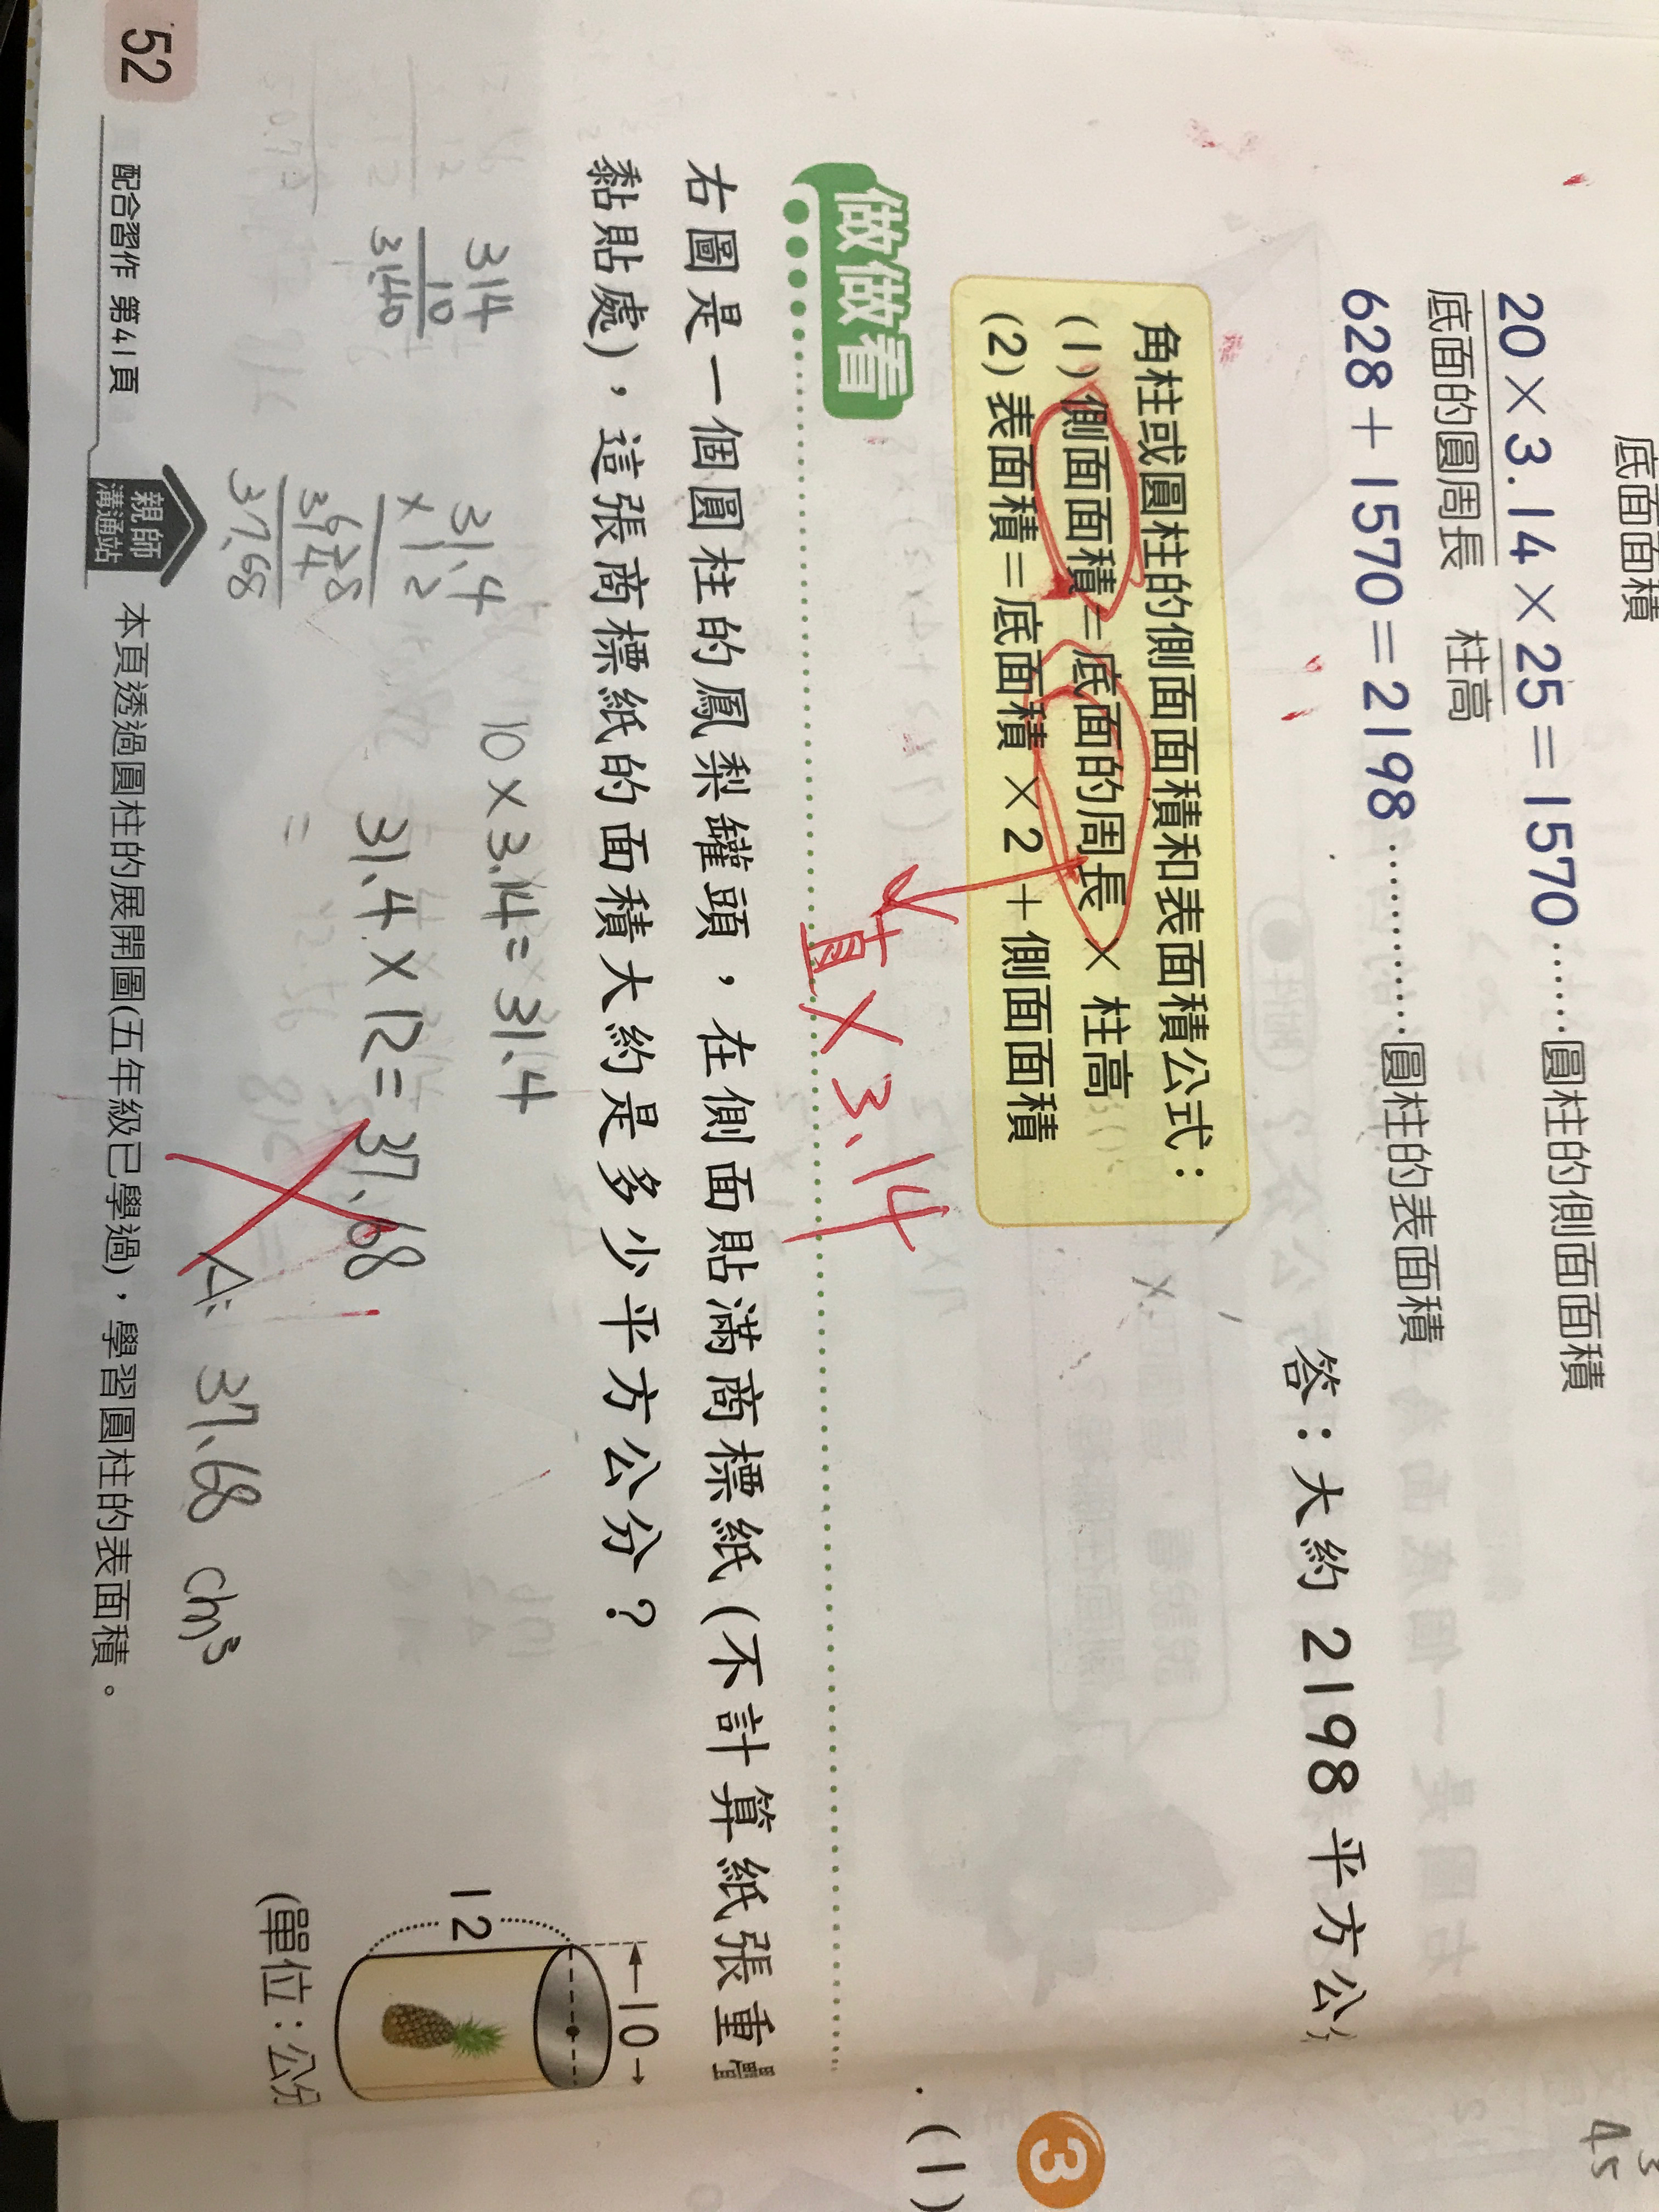 底面面積
20×3.14×25=1570……圓柱的側面面積
底面的圓周長 柱高
628+1570=2198…………圓柱的表面積
答:大約2198平方公
角柱或圓柱的側面面積和表面積公式:
(1)側面面積=底面的周長×柱高
(2)表面積=底面積×2+側面面積
直×3.14
做做看
右圖是一個圓柱的鳳梨罐頭,在側面貼滿商標紙(不計算紙張重
黏貼處),這張商標紙的面積大約是多少平方公分?
10×3.14=31.4
31.4×12=37.68
=
A: 37.68 cm³
314
10
3140
31.4
×12
628
314
37.68
10
12
(單位:公分
52
配合習作 第41頁
親師
溝通站
本頁透過圓柱的展開圖(五年級已學過),學習圓柱的表面積。
3
(1)
45